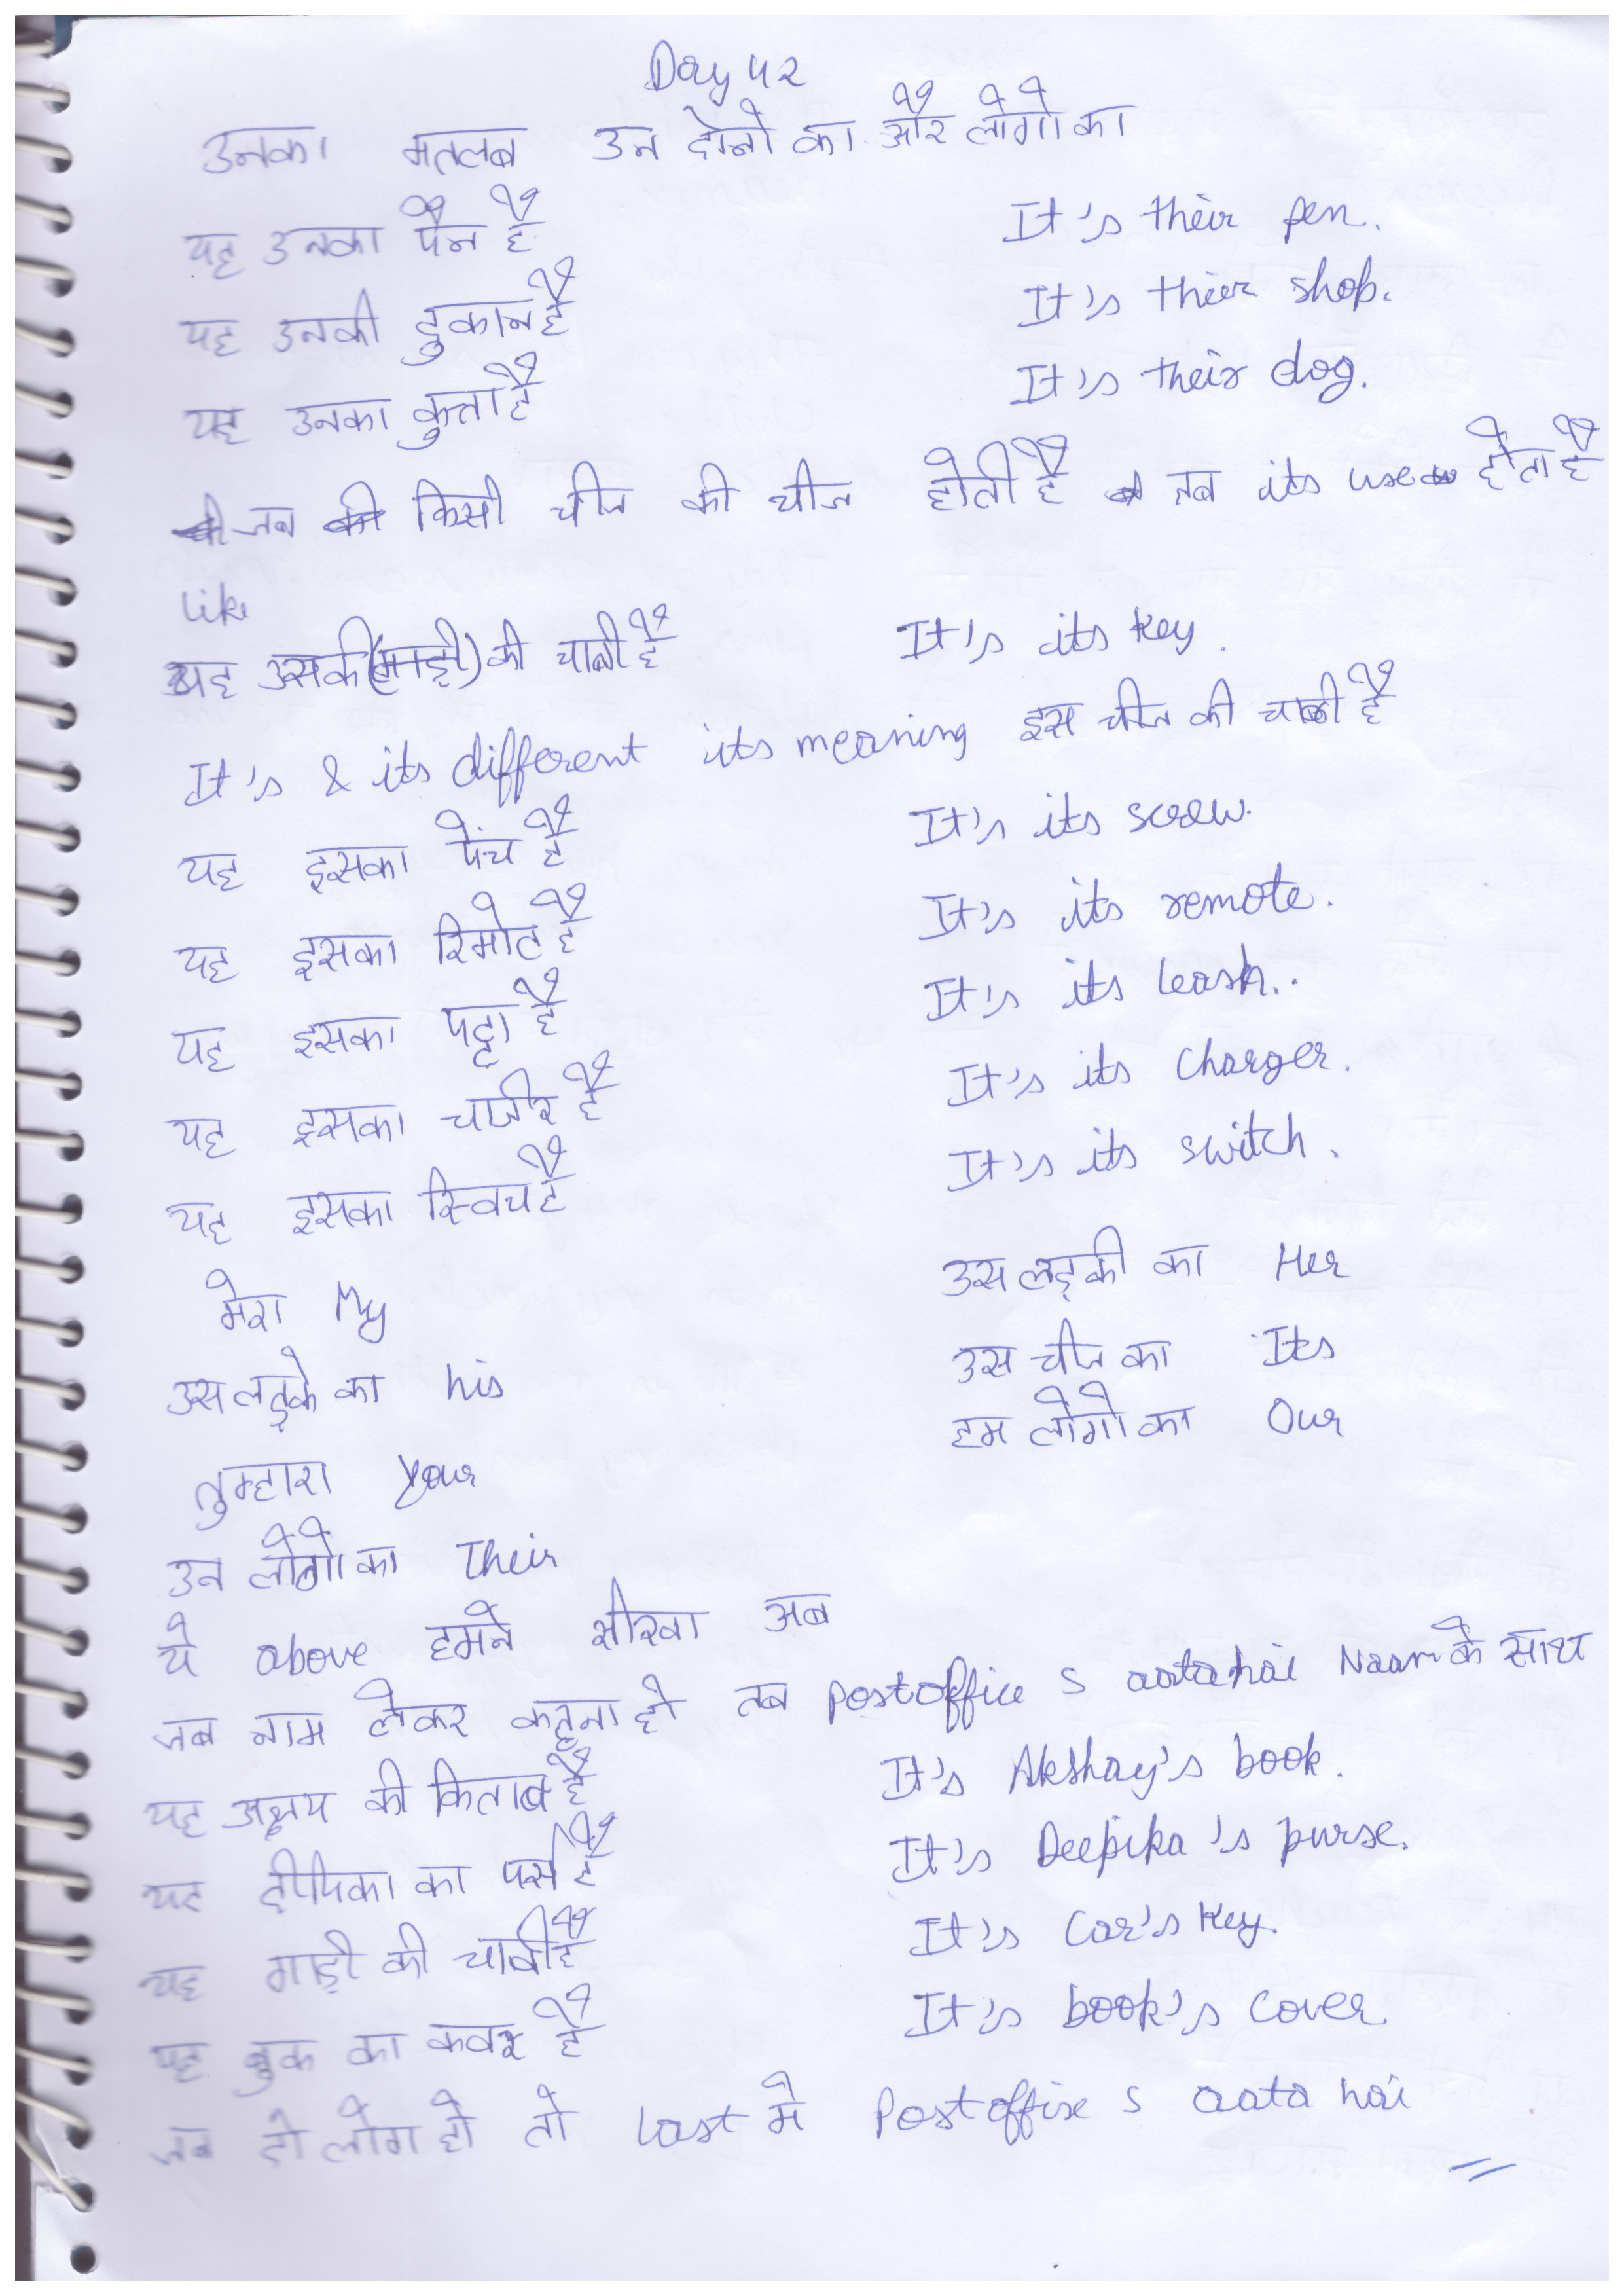 Day 42
उनका मतलब उन दोनो का और लोगो का
यह उनका पैन है It's their pen.
यह उनकी दुकान है It's thier shop.
यह उनका कुत्ता है It's their dog.
जब किसी चीज की चीज होती है तब its use होता है
like
यह उसकी (गाड़ी) की चाबी है It's its key.
It's & its different its meaning इस चीज की चाबी है
यह इसका पेंच है It's its screw.
यह इसका रिमोट है It's its remote.
यह इसका पट्टा है It's its leash..
यह इसका चार्जर है It's its Charger.
यह इसका स्विच है It's its switch.
मेरा My उस लड़की का Her
उस लड़के का his उस चीज का Its
तुम्हारा your हम लोगो का Our
उन लोगो का Their
ये above हमने सीखा अब
जब नाम लेकर कहना हो तब postoffice s aata hai Naam के साथ
यह अक्षय की किताब है It's Akshay's book.
यह दीपिका का पर्स है It's Deepika's purse.
यह गाड़ी की चाबी है It's Car's key.
यह बुक का कवर है It's book's cover.
जब दो लोग हो तो last मे Postoffixe s aata hai